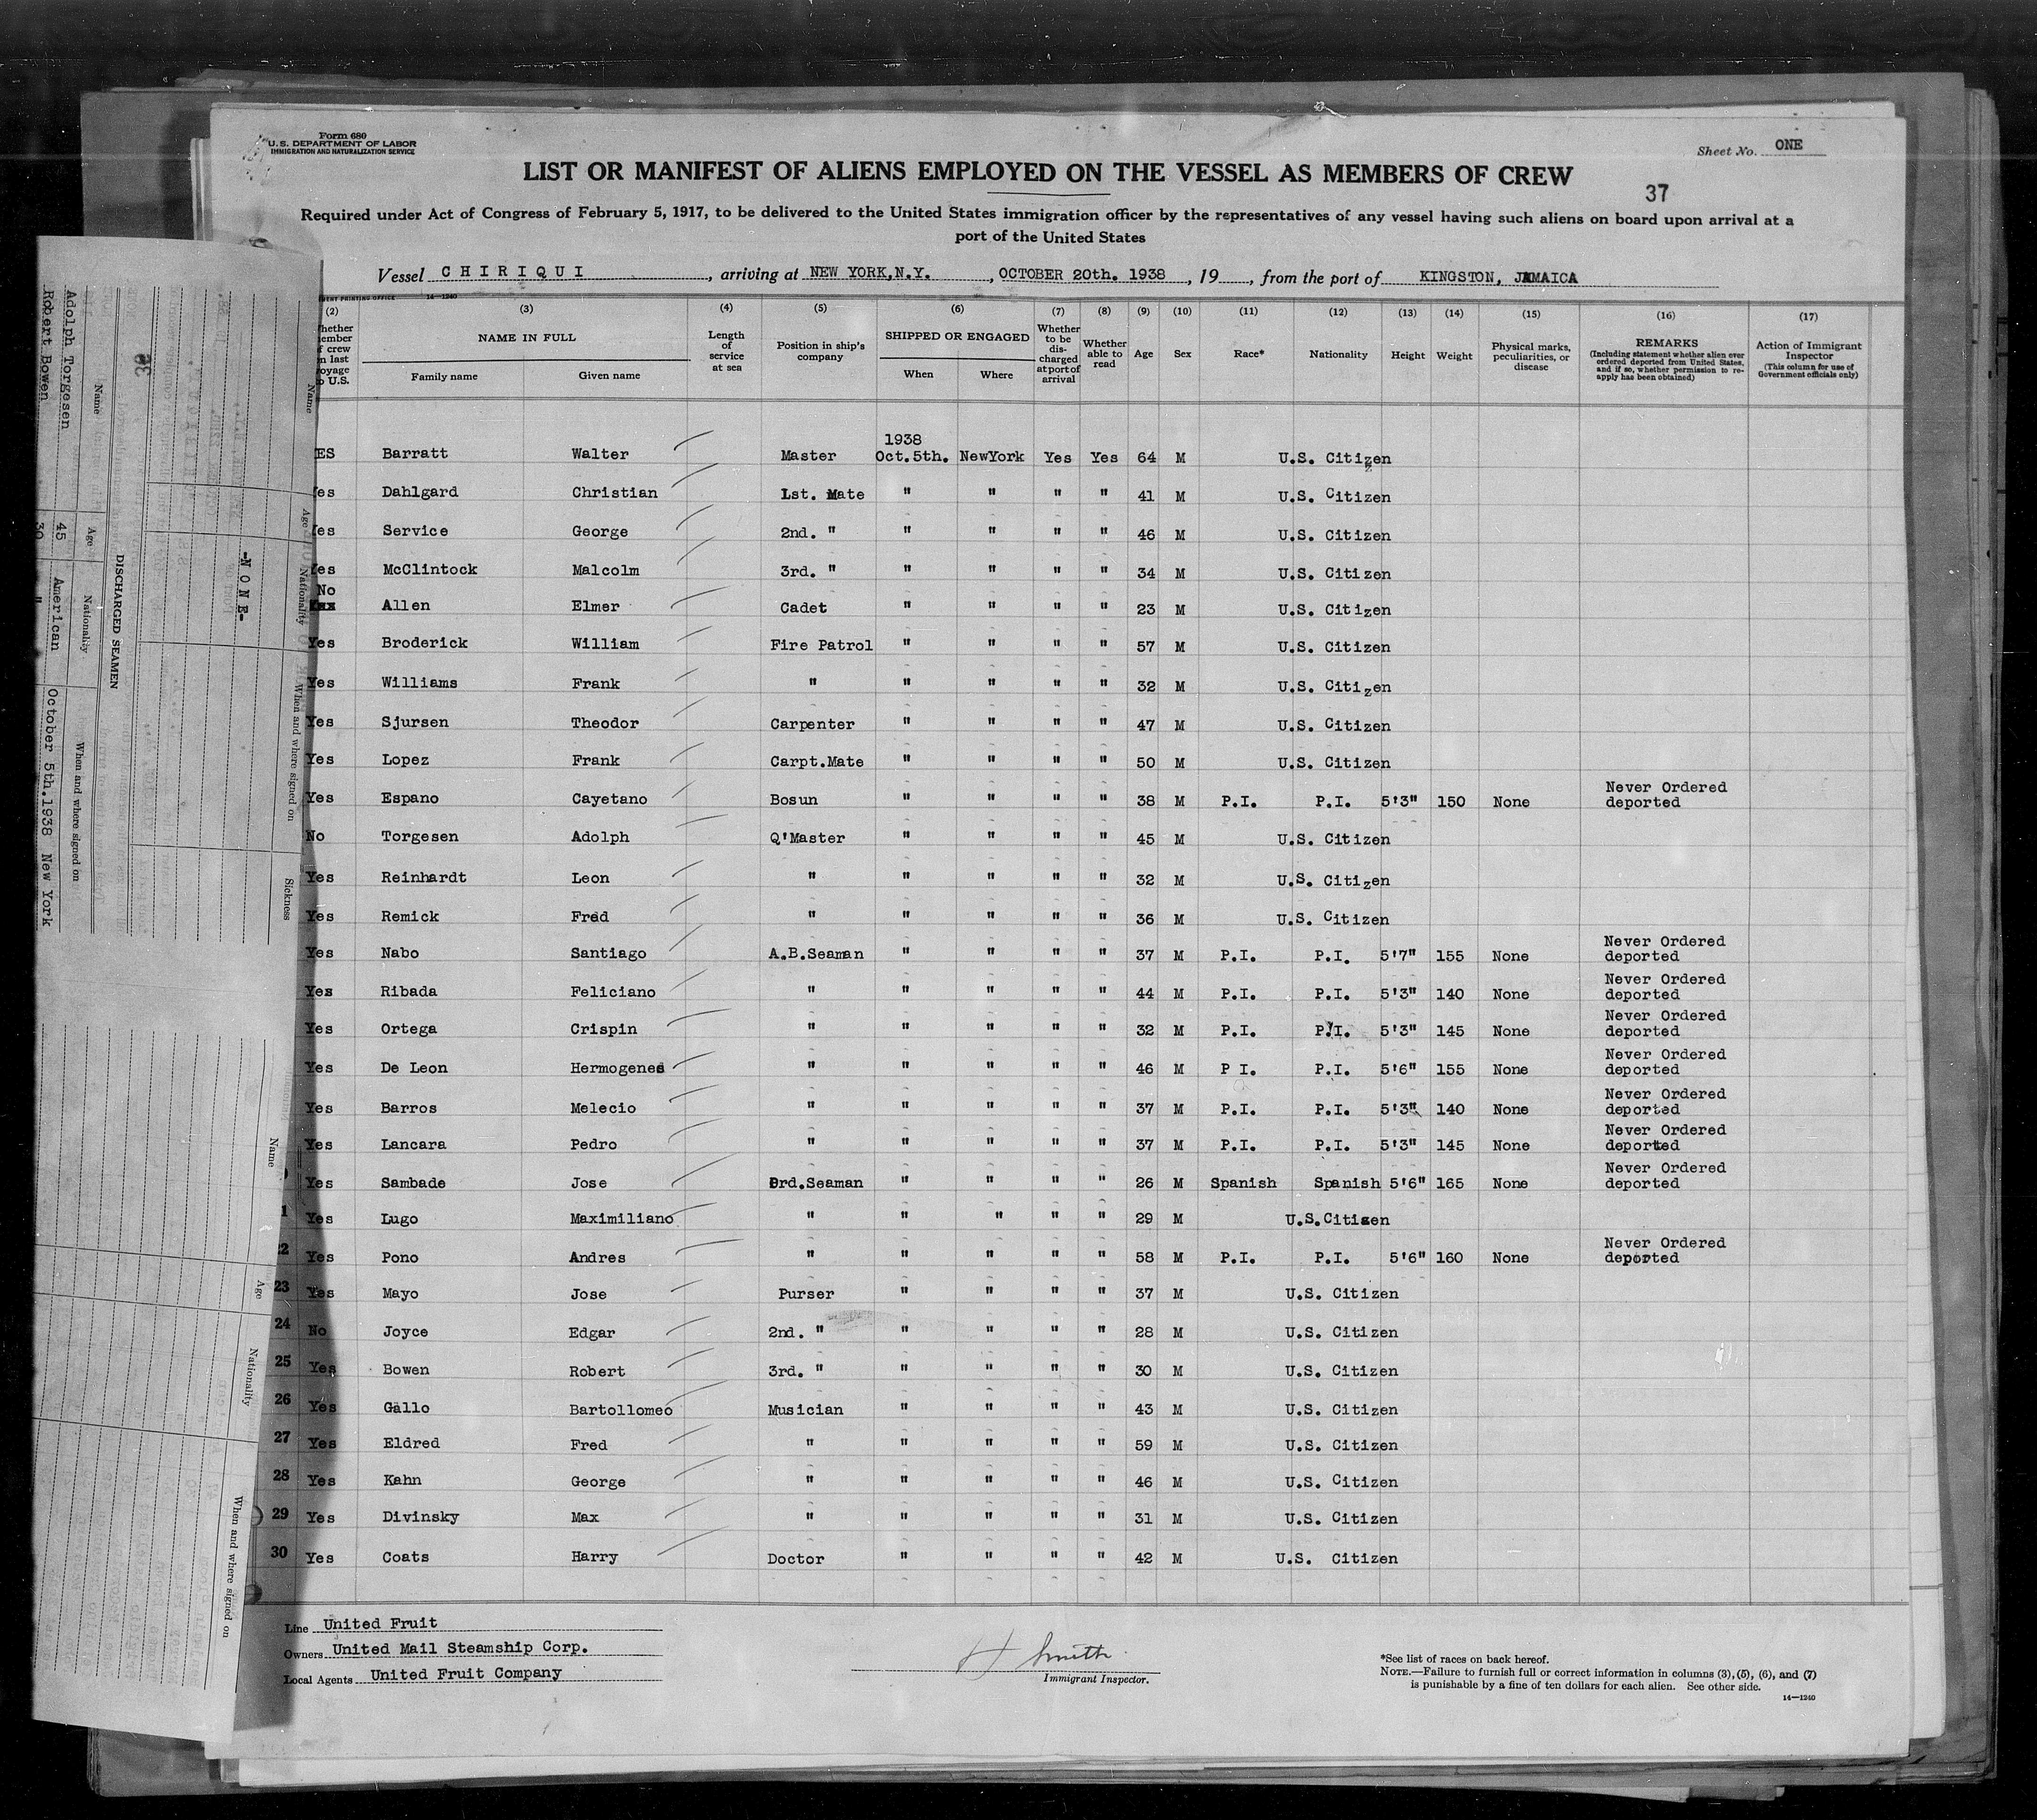 Form 680
U.S. DEPARTMENT OF LABOR
IMMIGRATION AND NATURALIZATION SERVICE
Sheet No. ONE
LIST OR MANIFEST OF ALIENS EMPLOYED ON THE VESSEL AS MEMBERS OF CREW
37
Required under Act of Congress of February 5, 1917, to be delivered to the United States immigration officer by the representatives of any vessel having such aliens on board upon arrival at a
port of the United States
Vessel CHIRIQUI, arriving at NEW YORK,N.Y., OCTOBER 20th. 1938, 19, from the port of KINGSTON, JAMAICA
14—1240
(2) (3) (4) (5) (6) (7) (8) (9) (10) (11) (12) (13) (14) (15) (16) (17)
NAME IN FULL
Family name Given name
Length of service at sea
Position in ship's company
SHIPPED OR ENGAGED
When Where
Whether to be discharged at port of arrival
Whether able to read
Age Sex Race* Nationality Height Weight
Physical marks, peculiarities, or disease
REMARKS
(Including statement whether alien ever ordered deported from United States, and if so, whether permission to re-apply has been obtained)
Action of Immigrant Inspector
(This column for use of Government officials only)
1938
ES Barratt Walter Master Oct.5th. NewYork Yes Yes 64 M U.S. Citizen
es Dahlgard Christian 1st. Mate " " " " 41 M U.S. Citizen
es Service George 2nd. " " " " " 46 M U.S. Citizen
Yes McClintock Malcolm 3rd. " " " " " 34 M U.S. Citizen
No Allen Elmer Cadet " " " " 23 M U.S. Citizen
Yes Broderick William Fire Patrol " " " " 57 M U.S. Citizen
Yes Williams Frank " " " " " 32 M U.S. Citizen
Yes Sjursen Theodor Carpenter " " " " 47 M U.S. Citizen
Yes Lopez Frank Carpt.Mate " " " " 50 M U.S. Citizen
Yes Espano Cayetano Bosun " " " " 38 M P.I. P.I. 5'3" 150 None Never Ordered deported
No Torgesen Adolph Q'Master " " " " 45 M U.S. Citizen
Yes Reinhardt Leon " " " " " 32 M U.S. Citizen
Yes Remick Fred " " " " " 36 M U.S. Citizen
Yes Nabo Santiago A.B.Seaman " " " " 37 M P.I. P.I. 5'7" 155 None Never Ordered deported
Yes Ribada Feliciano " " " " " 44 M P.I. P.I. 5'3" 140 None Never Ordered deported
Yes Ortega Crispin " " " " " 32 M P.I. P.I. 5'3" 145 None Never Ordered deported
Yes De Leon Hermogenes " " " " " 46 M P I. P.I. 5'6" 155 None Never Ordered deported
Yes Barros Melecio " " " " " 37 M P.I. P.I. 5'3" 140 None Never Ordered deported
Yes Lancara Pedro " " " " " 37 M P.I. P.I. 5'3" 145 None Never Ordered deported
Yes Sambade Jose Ord.Seaman " " " " 26 M Spanish Spanish 5'6" 165 None Never Ordered deported
1 Yes Lugo Maximiliano " " " " " 29 M U.S.Citizen
22 Yes Pono Andres " " " " " 58 M P.I. P.I. 5'6" 160 None Never Ordered deported
23 Yes Mayo Jose Purser " " " " 37 M U.S. Citizen
24 No Joyce Edgar 2nd. " " " " " 28 M U.S. Citizen
25 Yes Bowen Robert 3rd. " " " " " 30 M U.S. Citizen
26 Yes Gallo Bartollomeo Musician " " " " 43 M U.S. Citizen
27 Yes Eldred Fred " " " " " 59 M U.S. Citizen
28 Yes Kahn George " " " " " 46 M U.S. Citizen
29 Yes Divinsky Max " " " " " 31 M U.S. Citizen
30 Yes Coats Harry Doctor " " " " 42 M U.S. Citizen
Line United Fruit
Owners United Mail Steamship Corp.
Local Agents United Fruit Company
H Smith
Immigrant Inspector.
*See list of races on back hereof.
NOTE.—Failure to furnish full or correct information in columns (3), (5), (6), and (7)
is punishable by a fine of ten dollars for each alien. See other side.
14—1240
DISCHARGED SEAMEN
Name Age Nationality When and where signed on
Adolph Torgesen 45 American October 5th.1938 New York
Robert Bowen 30 "
Name Age Nationality When and where signed on Sickness
-NONE-
Name Age Nationality When and where signed on